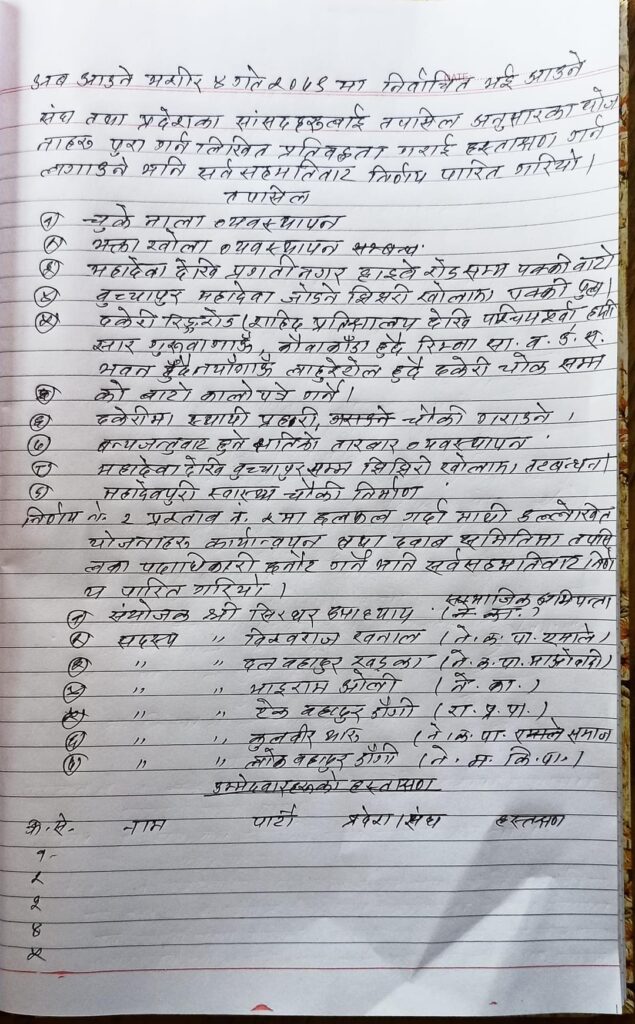 अब आउने मंसीर ४ गते २०७९ मा निर्वाचित भई आउने
संघ तथा प्रदेशका सांसदहरुलाई तपासिल अनुसारका योज
नाहरु पुरा गर्न लिखित प्रतिवद्धता गराई हस्ताक्षर गर्न
लगाउने भनि सर्वसहमतिवाट निर्णय पारित गरियो।
तपसिल
१ चुके नाला व्यवस्थापन
२ भक्ता खोला व्यवस्थापन सम्बन्ध
३ महादेवा देखि प्रगतीनगर हाइवे रोड सम्म पक्की वाटो
४ वुच्चापुर महादेवा जोडने झिझरी खोलामा पक्की पुल।
५ ढकेरी रिङरोड (शहिद प्रतिक्षालय देखि पश्चिम
गाउँ हुदै सा. व. उ. स.
भवन हुदै नयाँगाउँ लाहुरेटोल हुदै ढकेरी चोक सम्म
को बाटो कालोपत्रे गर्ने।
६ ढकेरीमा स्थायी प्रहरी चौकी गराउने।
७ वन्यजन्तुवाट हुने क्षतिको तारवार व्यवस्थापन
८ महादेवा देखि वुच्चापुर सम्म झिझिरी खोलामा तटबन्धन।
९ महादेवपुरी स्वास्थ्य चौकी निर्माण
निर्णय नं. २ प्रस्ताव नं. २ मा छलफल गर्दा माथी उल्लेखित
योजनाहरु कार्यान्वयन तथा दवाव समितिमा तपसि
लका पदाधिकारी छनौट गर्ने भनि सर्वसहमतिवाट निर्ण
य पारित गरियो।
सामाजिक अभियन्ता
१ संयोजक श्री उपाध्याय (ने. का.)
२ सदस्य " विश्वराज खनाल (ने. क. पा. एमाले)
३ " " दल वहादुर खड्का (ने. क. पा. माओवादी)
४ " " भाइराम ओली (ने. का.)
५ " " टेक वहादुर डाँगी (रा. प्र. पा.)
६ " " कुलवीर थारु (ने. क. पा. समाज
७ " " लोक वहादुर डाँगी (ने. म. कि. पा.)
उम्मेदवारहरुको हस्ताक्षर
क्र.सं. नाम पार्टी प्रदेश/संघ हस्ताक्षर
१.
२
३
४
५